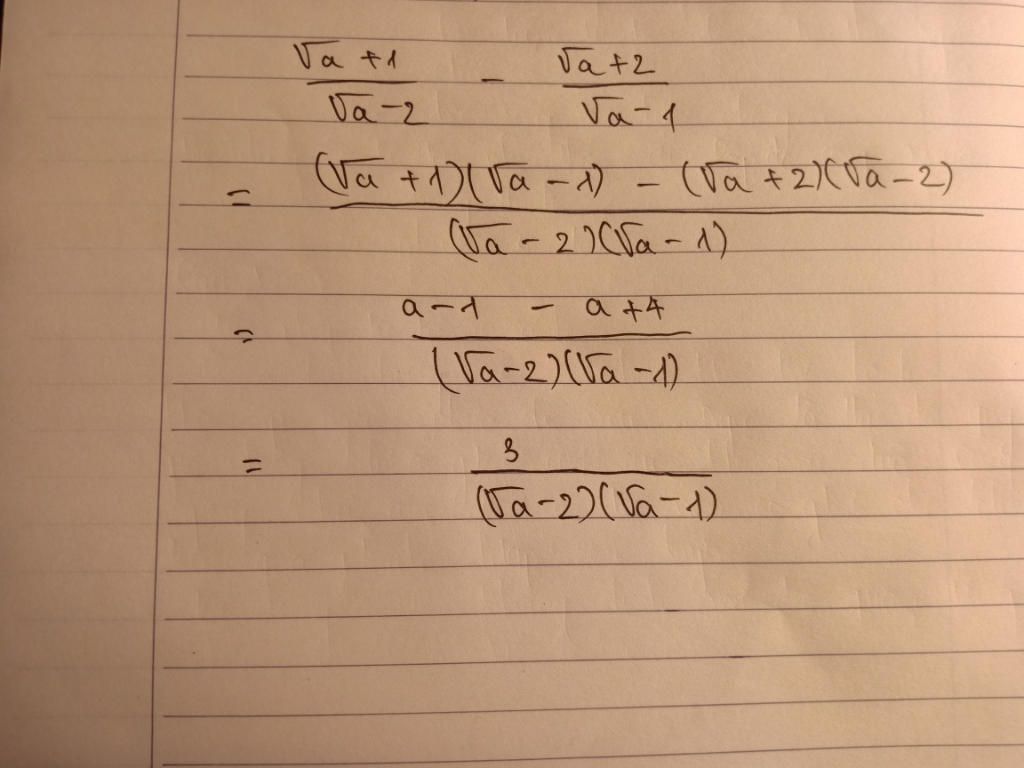 (√a + 1)/(√a - 2) - (√a + 2)/(√a - 1)
= ((√a + 1)(√a - 1) - (√a + 2)(√a - 2))/((√a - 2)(√a - 1))
= (a - 1 - a + 4)/((√a - 2)(√a - 1))
= 3/((√a - 2)(√a - 1))